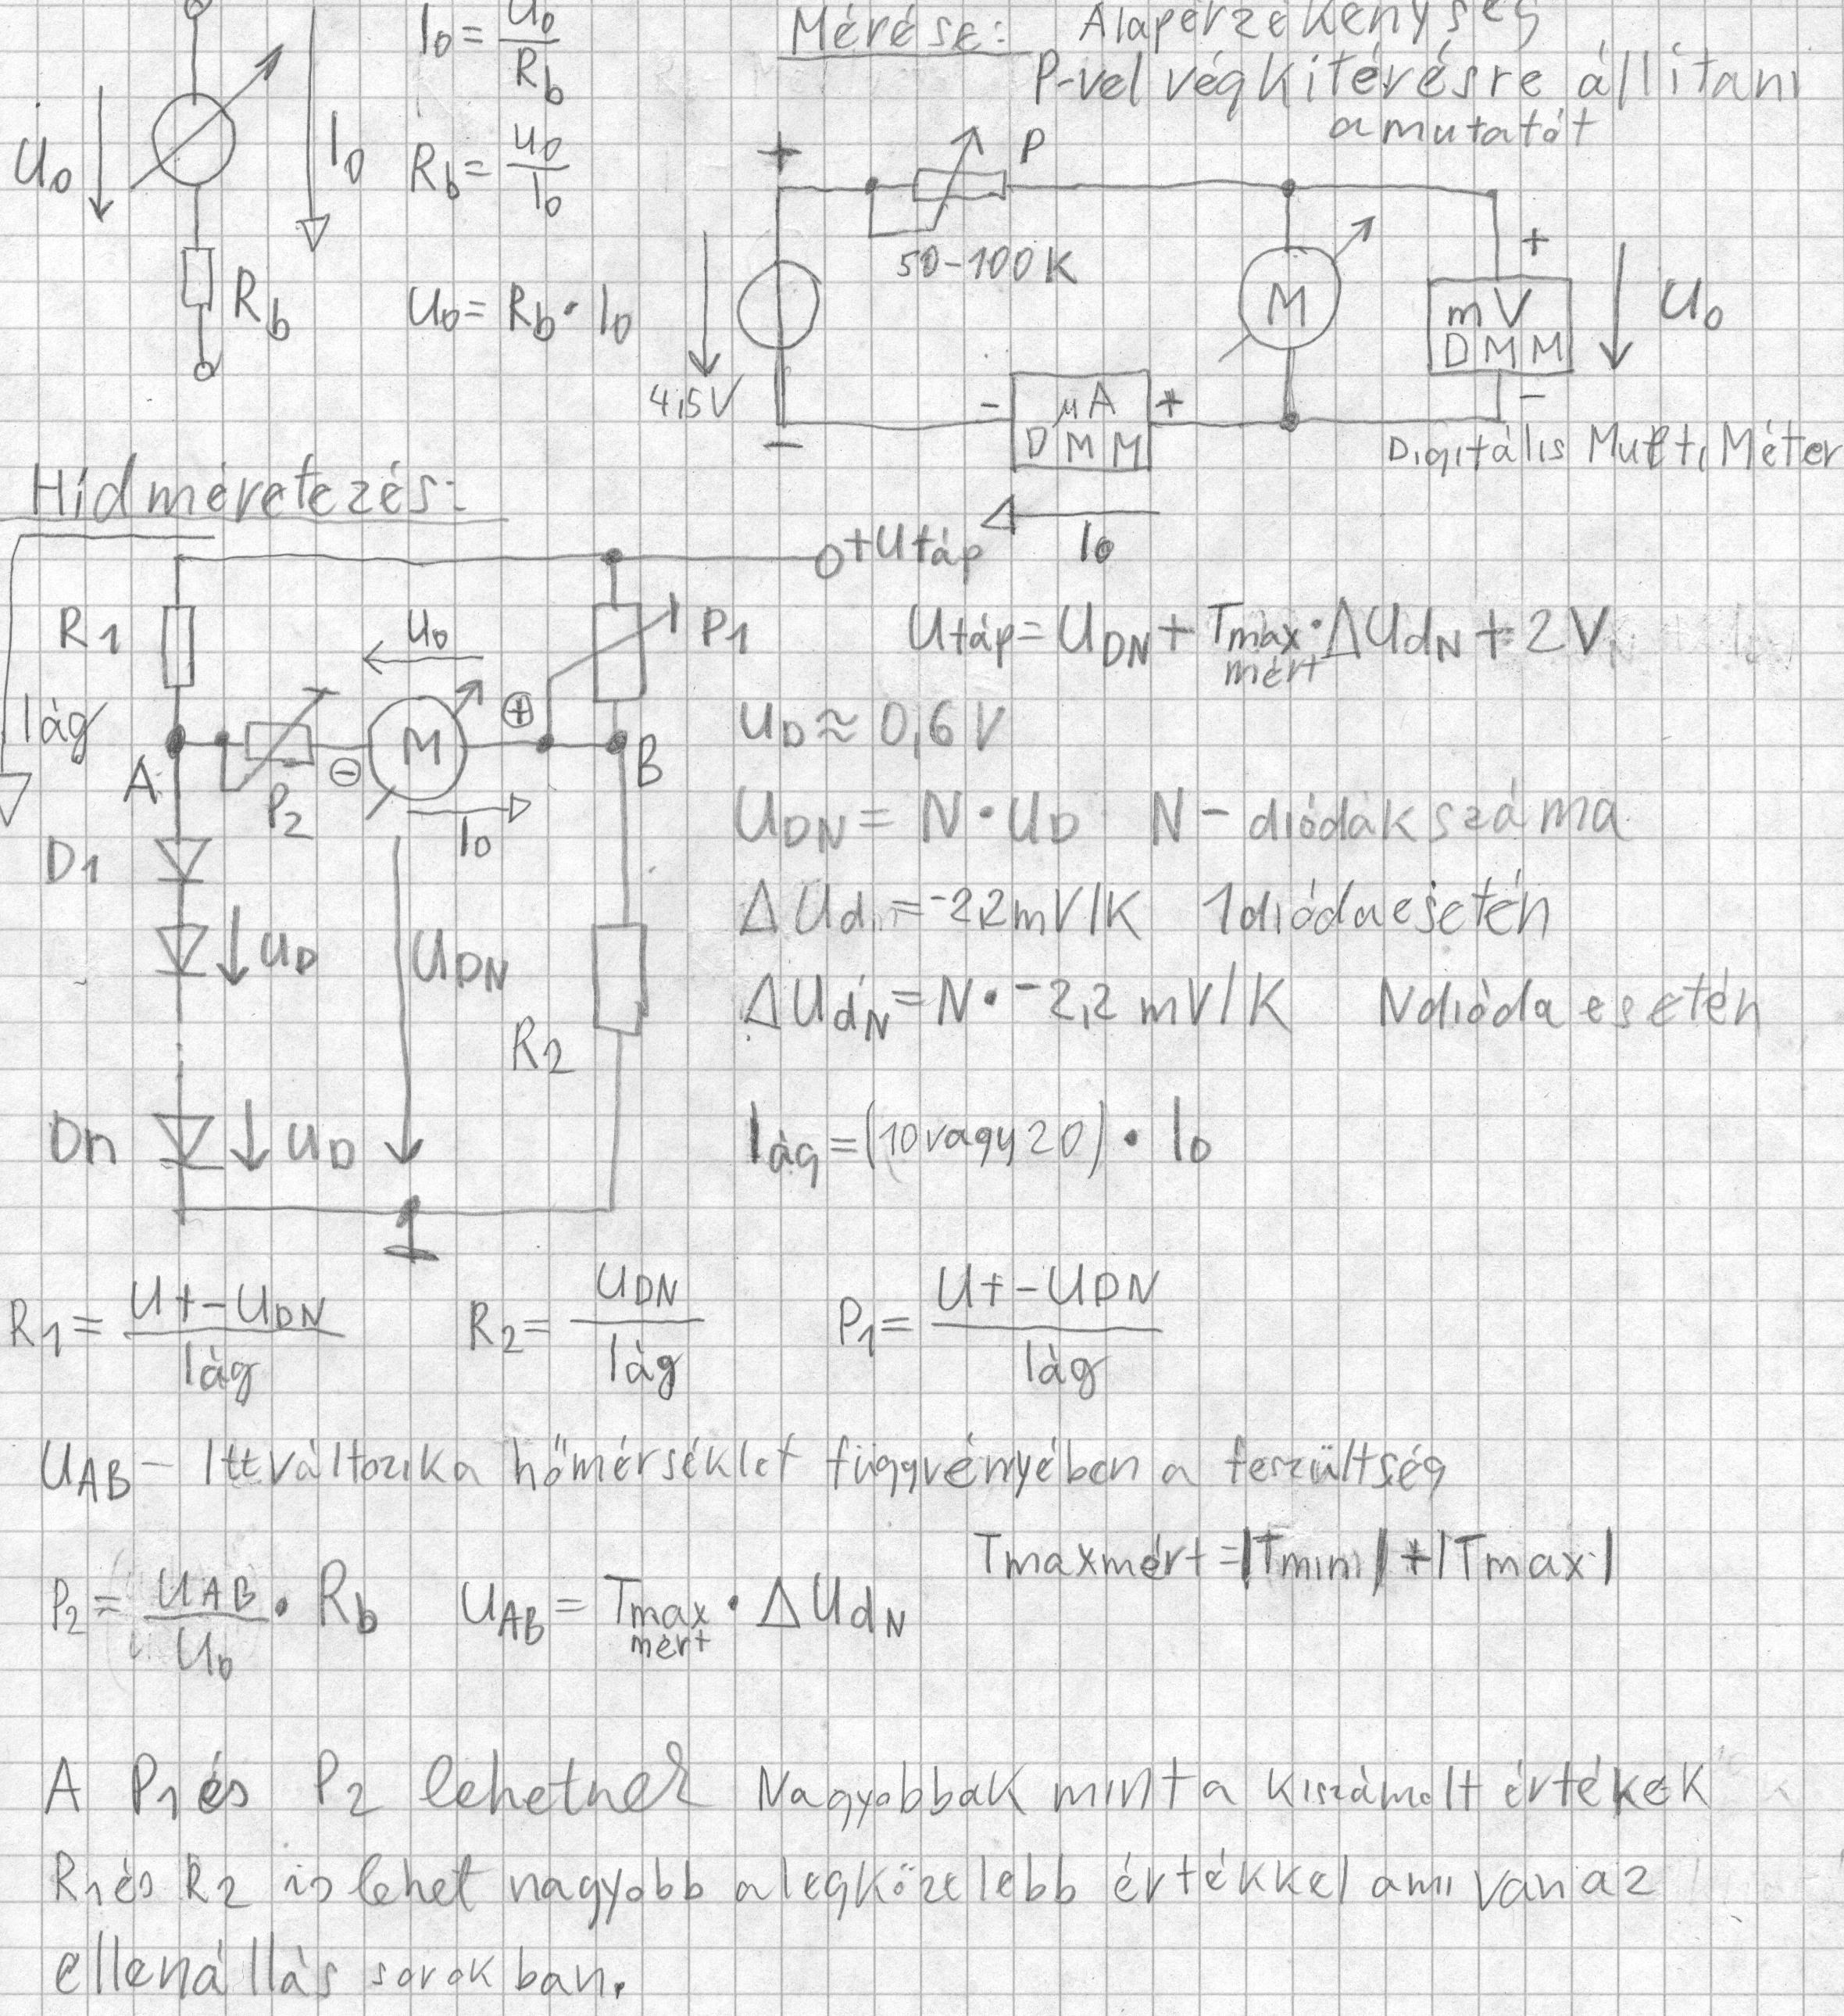 I0 = U0 / Rb
Mérése: Alapérzékenység
P-vel végkitérésre állítani
a mutatót
U0
I0
Rb = U0 / I0
Rb
U0 = Rb · I0
+
P
50-100K
4,5V
-
M
+
mV
DMM
-
U0
-
μA
DMM
+
Digitális Multi Méter
I0
Hídméretezés:
+Utáp
R1
U0
P1
Utáp = UDN + Tmax mért · ΔUdN + 2V
Iág
A
P2
-
M
+
B
I0
UD ≈ 0,6 V
UDN = N · UD N - diódák száma
D1
ΔUd = -2,2mV/K 1 dióda esetén
UD
UDN
ΔUdN = N · -2,2 mV/K N dióda esetén
R2
Dn
UD
Iág = (10 vagy 20) · I0
R1 = Ut - UDN / Iág
R2 = UDN / Iág
P1 = Ut - UDN / Iág
UAB - Itt változik a hőmérséklet függvényében a feszültség
Tmaxmért = |Tmin| + |Tmax|
P2 = UAB / U0 · Rb UAB = Tmax mért · ΔUdN
A P1 és P2 lehetnek Nagyobbak mint a kiszámolt értékek
R1 és R2 is lehet nagyobb a legközelebb értékkel ami van az
ellenállás sorokban.